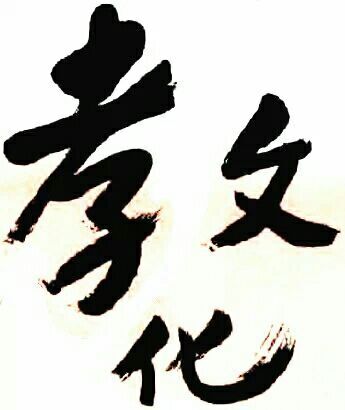 孝文化